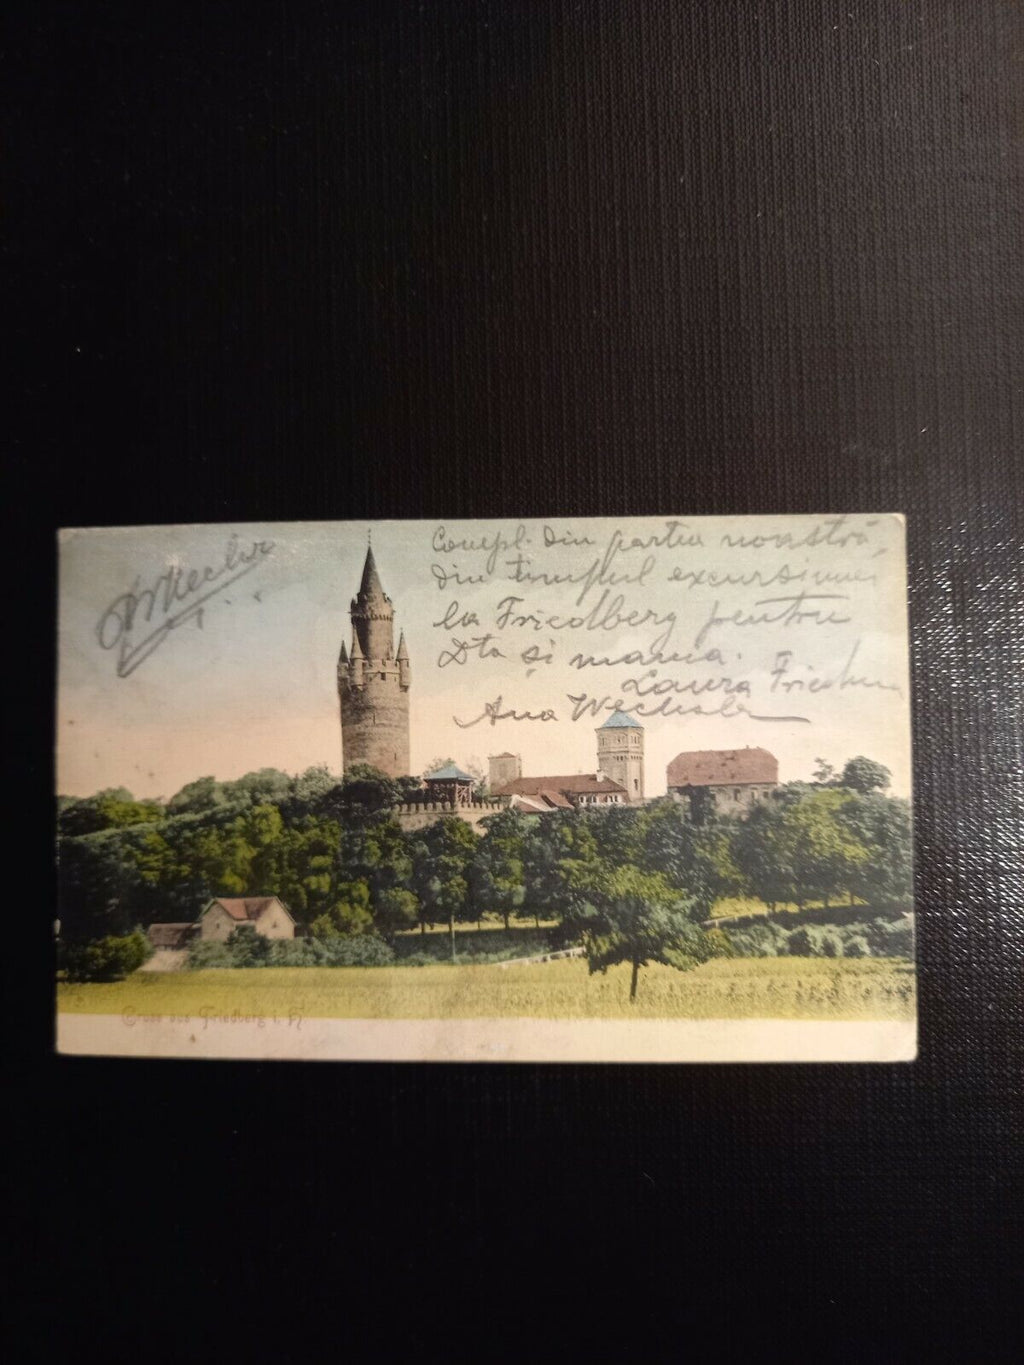 Wechsler
Compl. din partea noastră,
din timpul excursiunei
la Friedberg pentru
Dta și mama.
Laura
Ana Wechsler
Gruss aus Friedberg i. H